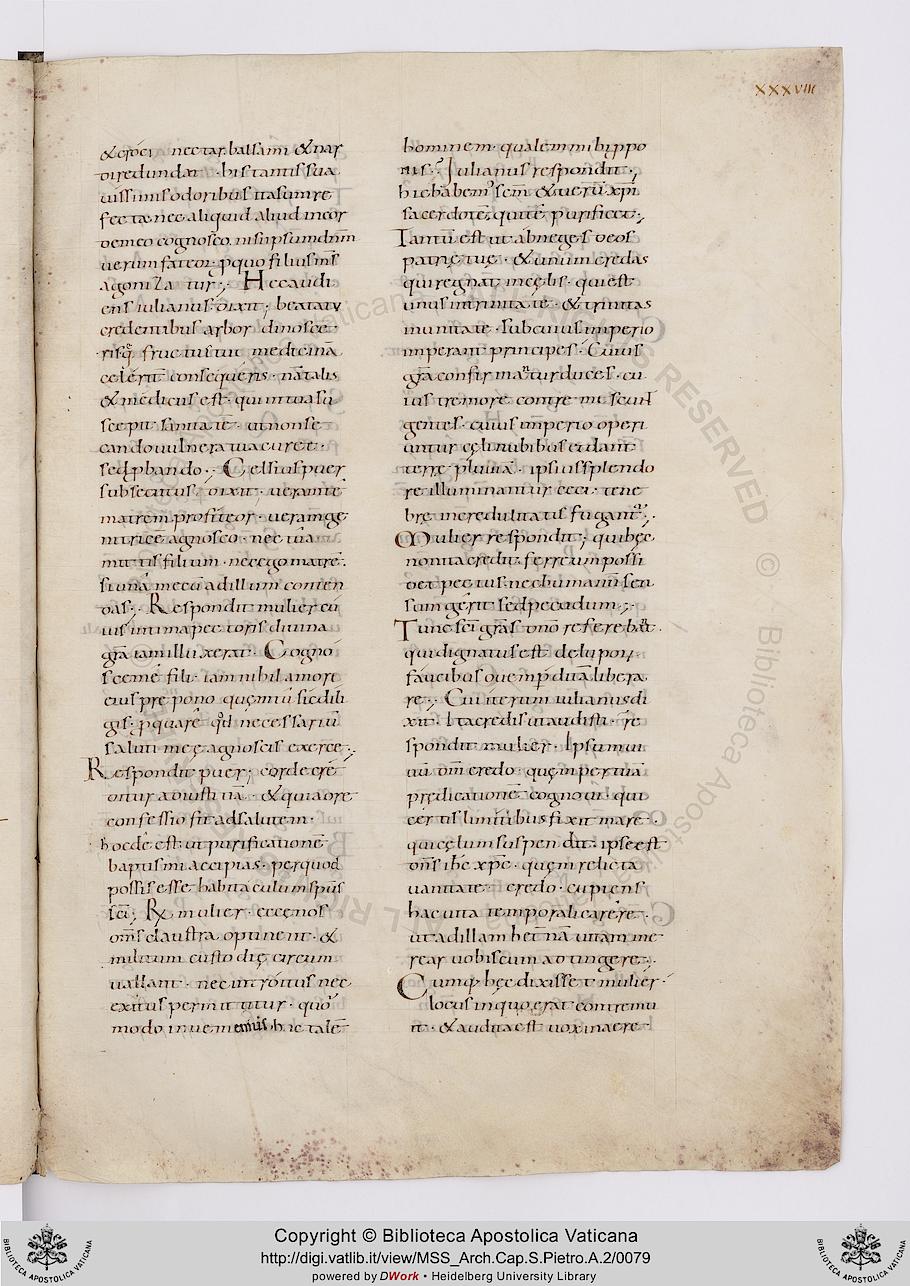 XXXVIII
& croci nectar balsami & nar
di redundat · his tantis sua
uissimis odoribus ita sum re
fecta nec aliquid aliud in cor
de meo cognosco nisi ipsum dnm
uerum fateor pquo filius ms
agoniza tur ·, Hec audi
ens iulianus dixit ; beata tu
credentibus arbor dinosce
ris fructus tui medicina
celerit consequeris · natalis
& medicus est · qui in tua su
scepit sanitate ut non se
cando uulnera tua curet ·
sed pbando ·, Celsius puer
subsecutus dixit · uerā mte
matrem profiteor · uerā mge
nitricē agnosco · nec tua
mittis filium · nec ego matrē
si una mecū ad illum conten
das ·, Respondit mulier cu
ius intima pectoris diuina
gra iam illuxerat · Cogno
sce me fili iam nihil amore
eius pre pono quem tu sic dili
gis · pquare qd necessariū
saluti meę agnoscis exerce ·,
Respondit puer ; corde cre
ditur ad iustitiā · & quia ore
confessio fit ad salutem ·
hoc de est ut purificatione
baptismi accipias · per quod
possis esse habitaculum sps
sci ; Rx mulier · ecce nos
oms claustra optinent · &
militum custodię circum
uallant · nec introitus nec
exitus permittitur · quo
modo inueniemus hic tale
hominem · qualem mihi ppo
nis ? Iulianus respondit ·,
hic habem scm & uerū xpi
sacerdote, qui te purificet ·,
Tantū est ut abneges deos
patrię tuę · & unum credas
qui regnat in cęlis · qui est
unus in trinitate · & trinitas
in unitate · sub cuius imperio
imperant principes · Cuius
gra confirmantur duces · cu
ius tremore contremiscunt
gentes · cuius imperio operi
untur cęli nubibus ut dant
terre pluuiā · ipsius splendo
re illuminantur ceci · tene
bre incredulitatis fugant ·,
Mulier respondit ; qui hęc
non ita credit ferreum possi
det pectus · nec humanū sen
sum gerit sed pecudum ·,
Tunc sci gras dno referebāt ·
qui dignatus est de lupory
faucibus ouem pditā libera
re ·, Cui iterum iulianus di
xit · Ita credis ut audisti · re
spondit mulier · Ipsum ui
uū dm credo · quęm per tuā
prędicatione cognoui · qui
certis limitibus fixit mare ·
qui cęlum suspendit · ipse est
dns ihc xpc · quęm relicta
uanitate credo · cupiens
hac uita temporali carere ·
ut ad illam hetnā uitam me
rear uobiscum adtingere ·,
Cumq hęc dixisset mulier ·
locus in quo erat contremu
it · & audita est uox in aere
Copyright © Biblioteca Apostolica Vaticana
http://digi.vatlib.it/view/MSS_Arch.Cap.S.Pietro.A.2/0079
powered by DWork • Heidelberg University Library